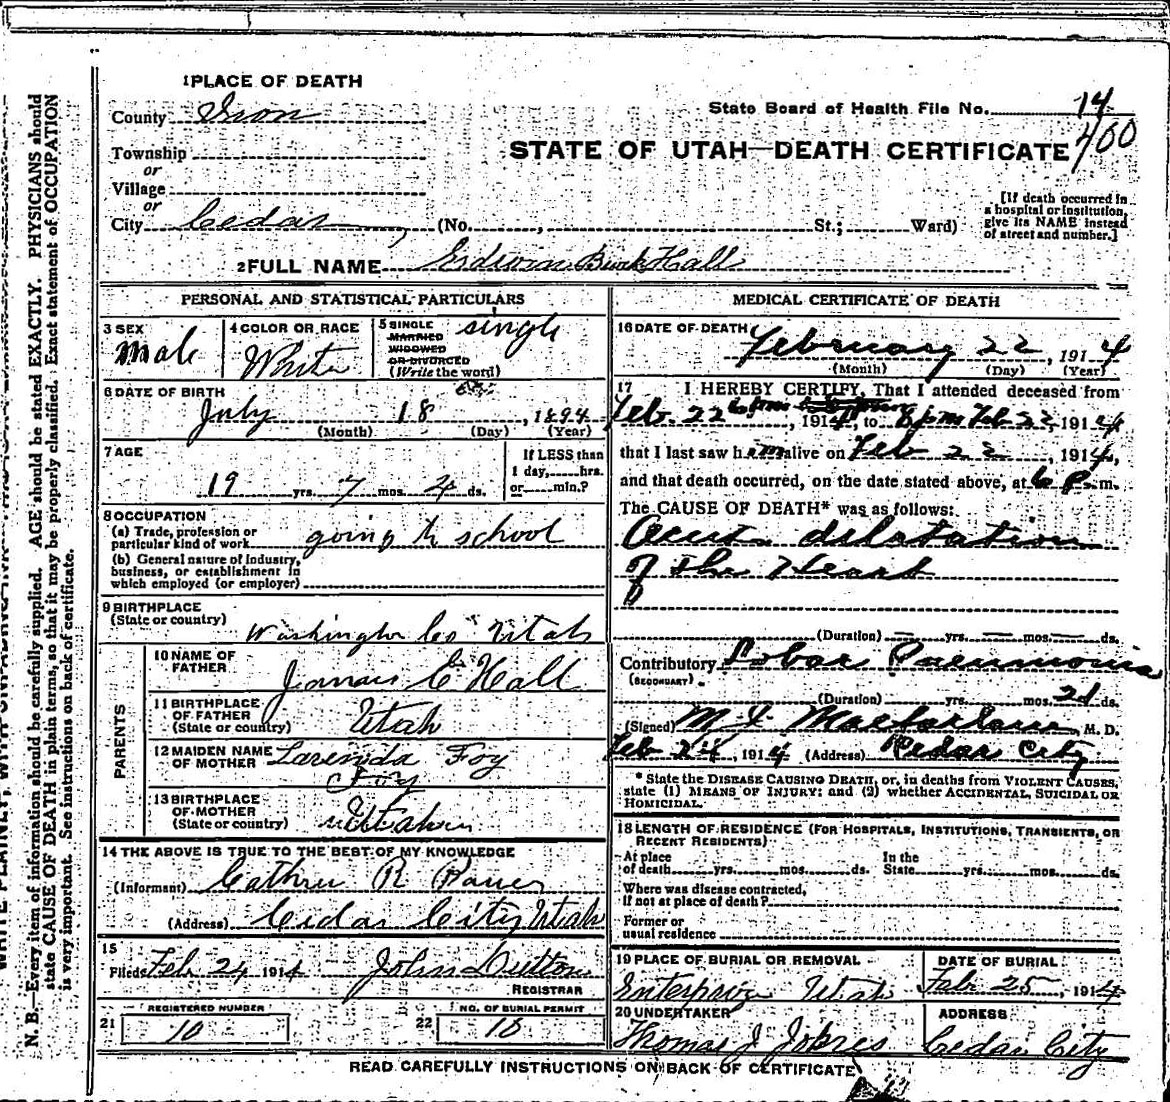 1 PLACE OF DEATH
County Iron
State Board of Health File No. 14
400
Township
or
Village
or
City Cedar, (No. , St.; Ward)
STATE OF UTAH—DEATH CERTIFICATE
[If death occurred in
a hospital or institution,
give its NAME instead
of street and number.]
2 FULL NAME Hall
PERSONAL AND STATISTICAL PARTICULARS
3 SEX
Male
4 COLOR OR RACE
White
5 SINGLE
MARRIED
WIDOWED
OR DIVORCED
(Write the word)
single
6 DATE OF BIRTH
July 18, 1894
(Month) (Day) (Year)
7 AGE
19 yrs. 7 mos. 4 ds.
If LESS than
1 day, hrs.
or min.?
8 OCCUPATION
(a) Trade, profession or
particular kind of work going to school
(b) General nature of industry,
business, or establishment in
which employed (or employer)
9 BIRTHPLACE
(State or country)
Washington Co Utah
PARENTS
10 NAME OF
FATHER
James E Hall
11 BIRTHPLACE
OF FATHER
(State or country)
Utah
12 MAIDEN NAME
OF MOTHER
Larenda Foy
Foy
13 BIRTHPLACE
OF MOTHER
(State or country)
14 THE ABOVE IS TRUE TO THE BEST OF MY KNOWLEDGE
(Informant) R
(Address) Cedar City Utah
15
Filed Feb 24 1914 John Dutton
REGISTRAR
REGISTERED NUMBER
21 10
NO. OF BURIAL PERMIT
22 18
MEDICAL CERTIFICATE OF DEATH
16 DATE OF DEATH
February 22, 1914
(Month) (Day) (Year)
17 I HEREBY CERTIFY, That I attended deceased from
Feb. 22 6 pm, 1914, to 8 pm Feb 22, 1914
that I last saw him alive on Feb 22, 1914,
and that death occurred, on the date stated above, at 6 p.m.
The CAUSE OF DEATH* was as follows:
Acute dilatation
of the Heart
(Duration) yrs. mos. ds.
Contributory Lobar Pneumonia
(SECONDARY)
(Duration) yrs. mos. 2d ds.
(Signed) M J Macfarlane, M. D.
Feb 24, 1914 (Address) Cedar City
* State the DISEASE CAUSING DEATH, or, in deaths from VIOLENT CAUSES,
state (1) MEANS OF INJURY; and (2) whether ACCIDENTAL, SUICIDAL OR
HOMICIDAL.
18 LENGTH OF RESIDENCE (FOR HOSPITALS, INSTITUTIONS, TRANSIENTS, OR
RECENT RESIDENTS)
At place
of death yrs. mos. ds.
In the
State yrs. mos. ds.
Where was disease contracted,
if not at place of death?
Former or
usual residence
19 PLACE OF BURIAL OR REMOVAL
Enterprize Utah
DATE OF BURIAL
Feb 25, 1914
20 UNDERTAKER
Thomas J Jones
ADDRESS
Cedar City
READ CAREFULLY INSTRUCTIONS ON BACK OF CERTIFICATE
N. B.—Every item of information should be carefully supplied. AGE should be stated EXACTLY. PHYSICIANS should
state CAUSE OF DEATH in plain terms, so that it may be properly classified. Exact statement of OCCUPATION
is very important. See instructions on back of certificate.